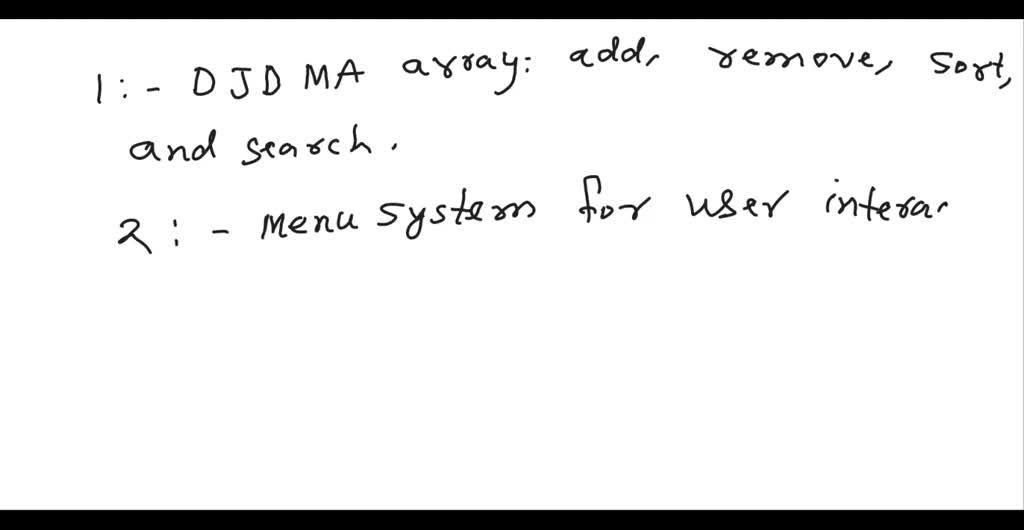 1:- DJDMA array: add, remove, sort,
and search.
2:- Menu system for user intera